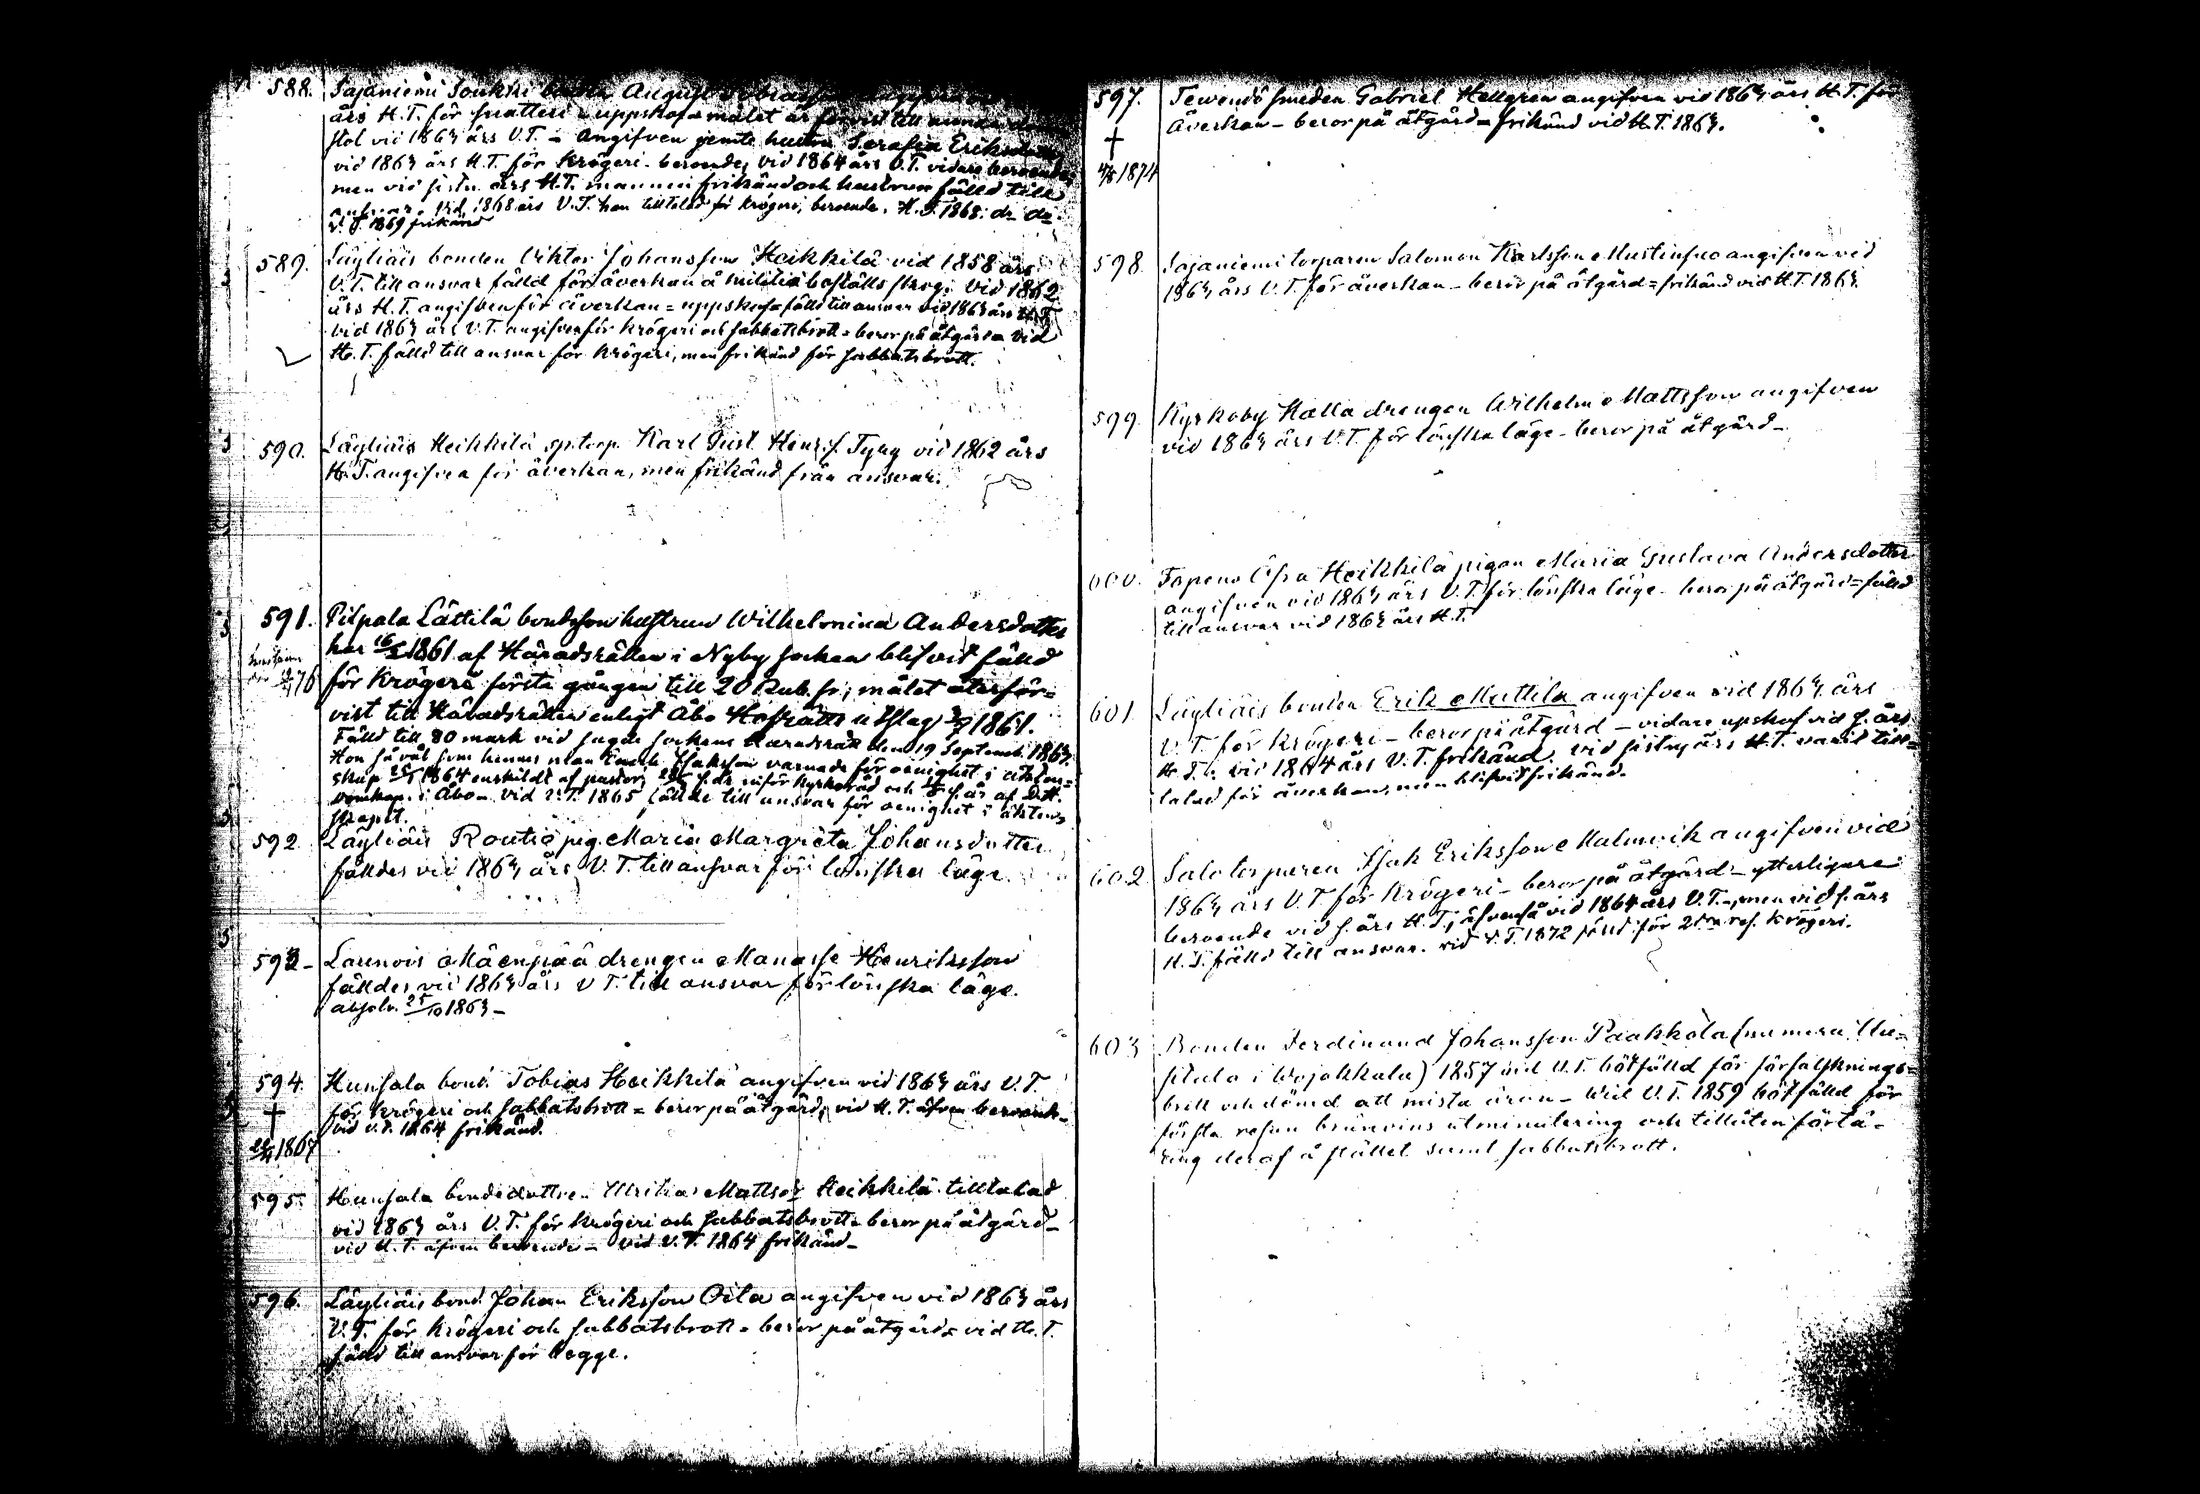 588. Sajaniemi Soukki August
års H.T. för snatteri uppskof = målet är förvist till annan dom
stol vid 1863 års V.T. = Angifven jemte hustru Serafia Eriksdotter
vid 1863 års H.T. för krögeri - beroende, vid 1864 års V.T. vidare beroende,
men vid sistn. års H.T. mannen frikänd och hustrun fälld till
ansvar. Vid 1868 års V.T. han tilltalad för krögeri, beroende. H.T. 1868: do do.
V.T. 1869 frikänd
589. Läyliäis bonden Viktor Johansson Heikkilä vid 1858 års
V.T. till ansvar fälld för åverkan å militiæ boställs skog. Vid 1862
års H.T. angifven för åverkan = uppskof = fälld till ansvar vid 1863 års H.T.
vid 1863 års V.T. angifven för krögeri och sabbatsbrott = beror på åtgärd = vid
H.T. fälld till ansvar för krögeri, men frikänd för sabbatsbrott.
590. Läyliäis Heikkilä sp.torp. Karl Gust. Henr.s. Tyry vid 1862 års
H.T. angifven för åverkan, men frikänd från ansvar.
591. Pilpala Lättilä bondeson hustrun Wilhelmina Andersdotter
har 16/5 1861 af Häradsrätten i Nyby socken blifvit fälld
för krögeri första gången till 20 Rub. sr, målet återför-
vist till Häradsrätten enligt Åbo Hofrätts utslag 1861.
Fälld till 80 mark vid samma sockens Häradsrätt den 19 Septemb. 1863.
Hon så väl som hennes man Isaksson varnade för oenighet i äkten-
skap 1864 enskildt af pastor, s. år inför kyrkoråd och s. år af D.K.
i Åbo. Vid V.T. 1865 fällde till ansvar för oenighet i äkten-
skapet.
592. Läyliäis Routio pig. Maria Margreta Johansdotter
fälldes vid 1863 års V.T. till ansvar för lönska läge.
593 - Laurnois Mäenpää drengen Manasse Henriksson
fälldes vid 1863 års V.T. till ansvar för lönska läge.
absolv. 25/10 1863 -
594. Hunsala bond. Tobias Heikkilä angifven vid 1863 års V.T.
† för krögeri och sabbatsbrott = beror på åtgärd, vid H.T. äfven beroende -
vid V.T. 1864 frikänd.
1867
595. Hunsala bondedottren Ulrika Mattsdr Heikkilä tilltalad
vid 1863 års V.T. för krögeri och sabbatsbrott = beror på åtgärd -
vid H.T. äfven beroende - vid V.T. 1864 frikänd -
596. Läyliäis bond. Johan Eriksson Oila angifven vid 1863 års
V.T. för krögeri och sabbatsbrott = beror på åtgärd = vid H.T.
fälld till ansvar för begge.
597. Tewendö smeden Gabriel Hellgren angifven vid 1863 års H.T. för
åverkan - beror på åtgärd = frikänd vid H.T. 1863.
†
4/8 1874
598. Sajaniemi torparen Salomon Karlsson Mustinsuo angifven vid
1863 års V.T. för åverkan - beror på åtgärd = frikänd vid H.T. 1863.
599. Kyrkoby Halla drengen Wilhelm Mattsson angifven
vid 1863 års V.T. för lönska läge - beror på åtgärd -
600. Topeno Heikkilä pigan Maria Gustava Andersdotter
angifven vid 1863 års V.T. för lönska läge - beror på åtgärd = fälld
till ansvar vid 1863 års H.T.
601. Läyliäis bonden Erik Mattila angifven vid 1863 års
V.T. för krögeri - beror på åtgärd - vidare uppskof vid s. års
H.T., vid 1864 års V.T. frikänd. vid sistnj. års H.T. varit till-
talad för åverkan, men blifvit frikänd.
602. Salo torparen Isak Eriksson Malmvik angifven vid
1863 års V.T. för krögeri - beror på åtgärd - ytterligare
beroende vid s. års H.T., äfvenså vid 1864 års V.T. -, men vid s. års
H.T. fälld till ansvar. vid V.T. 1872 fälld för 2dra res. krögeri.
603. Bonden Ferdinand Johansson Paakkola (numera Uu-
sitalo i Wojakkala) 1857 vid V.T. bötfälld för förfalsknings-
brott och dömd att mista äran - Wid V.T. 1859 bötfälld för
första resan bränvins utminutering och tillåten förtä-
ring deraf å stället samt sabbatsbrott.